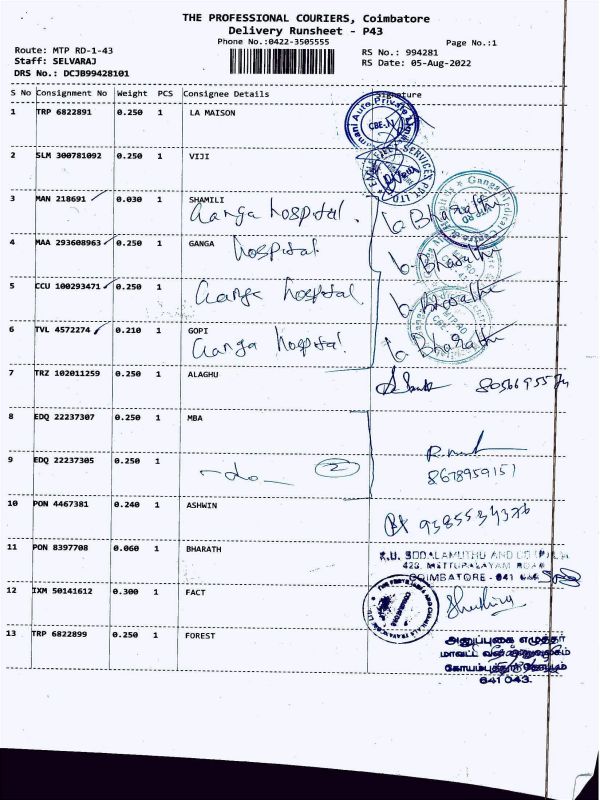 THE PROFESSIONAL COURIERS, Coimbatore
Delivery Runsheet - P43
Phone No.:0422-3505555
Page No.:1
Route: MTP RD-1-43
Staff: SELVARAJ
DRS No.: DCJB99428101
RS No.: 994281
RS Date: 05-Aug-2022
S No Consignment No Weight PCS Consignee Details Signature
1 TRP 6822891 0.250 1 LA MAISON
2 SLM 300781092 0.250 1 VIJI
3 MAN 218691 0.030 1 SHAMILI
Ganga hospital. Bharathi
4 MAA 293608963 0.250 1 GANGA
hospital Bharathi
5 CCU 100293471 0.250 1
Ganga hospital. Bharathi
6 TVL 4572274 0.210 1 GOPI
Ganga hospital. Bharathi
7 TRZ 102011259 0.250 1 ALAGHU
8 EDQ 22237307 0.250 1 MBA
9 EDQ 22237305 0.250 1
-do- 2 8678959151
10 PON 4467381 0.240 1 ASHWIN
11 PON 8397708 0.060 1 BHARATH
METTUPALAYAM ROAD
COIMBATORE - 641
12 IXM 50141612 0.300 1 FACT
13 TRP 6822899 0.250 1 FOREST
அனுப்புகை எழுத்தர்
மாவட்ட
641 043.